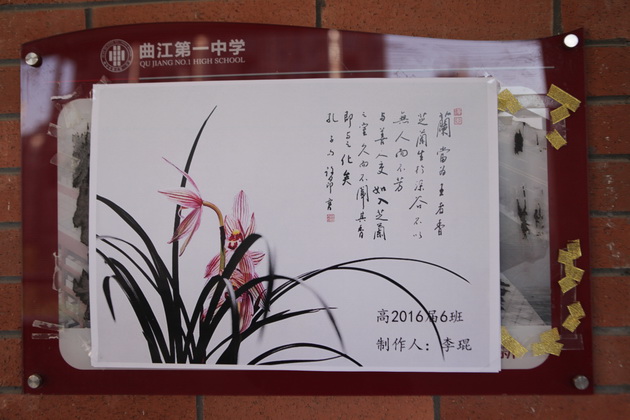 曲江第一中学
QU JIANG NO.1 HIGH SCHOOL
蘭當為王者香
芝蘭生於深谷不以
無人而不芳
与善人交如入芝蘭
之室久而不聞其香
即与之化矣
孔子
高2016届6班
制作人：李琨